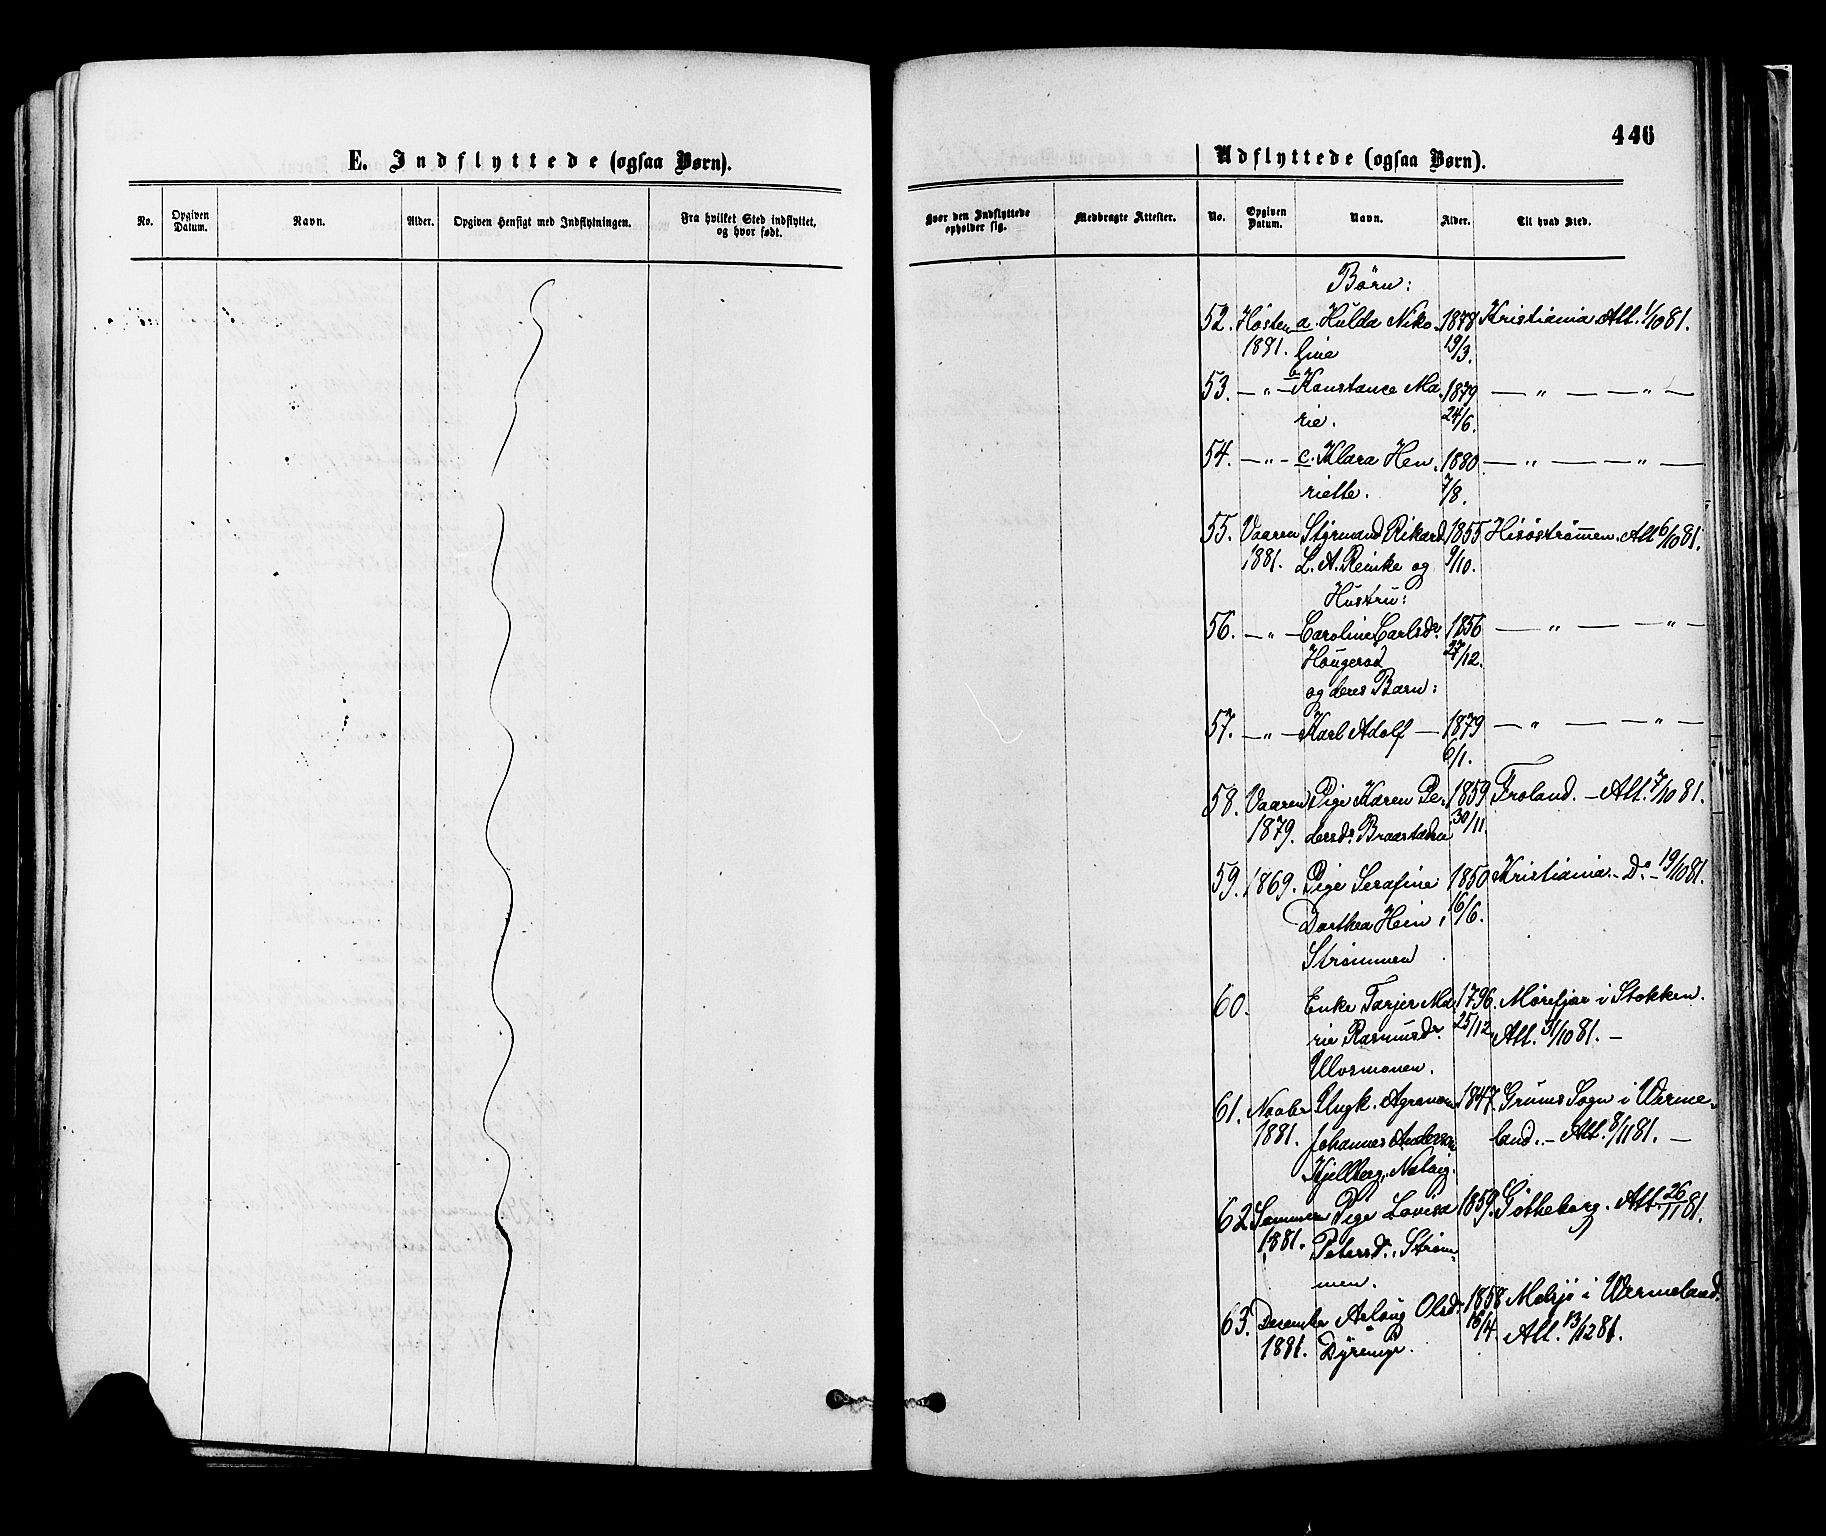 E. Indflyttede (ogsaa Børn).
No. Opgiven Datum. Navn. Alder. Opgiven Hensigt med Indflytningen. Fra hvilket Sted indflyttet, og hvor født.
446
Udflyttede (ogsaa Børn).
Hvor den Indflyttede opholder sig. Medbragte Attester. No. Opgiven Datum. Navn. Alder. Til hvad Sted.
Børn:
52. Høsten a. Hulda Niko- 1878 Kristiania Att. 1/10 81.
1881. line 19/3.
53. — " — b Konstance Ma- 1879 — " — — " —
rie. 24/6.
54. — " — c. Klara Hen- 1880 — " — — " —
riette. 7/8.
55. Vaaren Styrmand Rikard 1855 Hisøstrømmen. Att 6/10 81.
1881. L. A. Reinke og 9/10.
Hustru:
56. — " — Caroline Carlsdr. 1856 — " — — " —
Haugerød 27/12.
og deres Barn:
57. — " — Karl Adolf — 1879 — " — — " —
6/1.
58. Vaaren Pige Karen Pe- 1859 Froland. — Att. 7/10 81.
1879. dersd. Braastaden 30/11.
59. 1869. Pige Serafine 1850 Kristiania. — Do — 19/10 81.
Dorthea Hein, 16/6.
Strømmen
60. Enke Tarjer Ma- 1796. Mørefjær i Stokken.
rie Rasmusdr. 25/12 Att. 31/10 81. —
Ulvsmonen.
61. Novbr Ungk. Agronom 1847. Grums Sogn i Werme-
1881. Johannes Anderson land. — Att. 8/11 81. —
Kjellberg, Natvig.
62 Sommeren Pige Lovisa 1859. Götheborg. Att. 26/11 81.
1881. Petersd., Strøm-
men.
63. Desember Aslaug Olsd. 1858 i Wermeland.
1881. Dyremyr. 16/4. Att. 13/12 81.